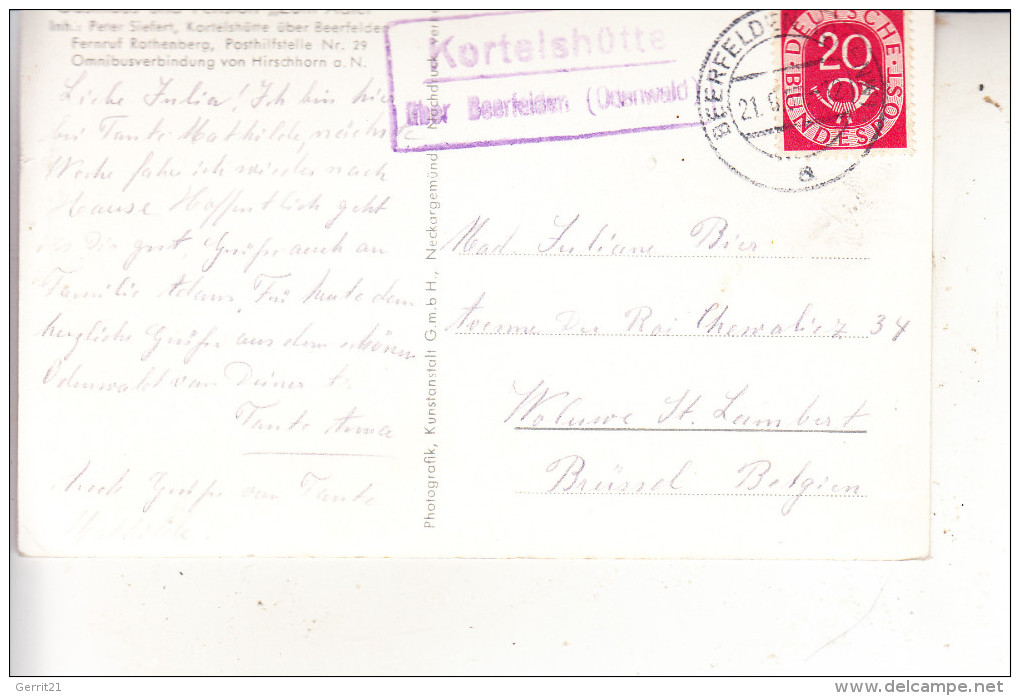 Gasthaus und Pension „Zum Adler"
Inh.: Peter Siefert, Kortelshütte über Beerfelden
Fernruf Rothenberg, Posthilfstelle Nr. 29
Omnibusverbindung von Hirschhorn a. N.
Liebe Julia! Ich bin hier
bei Tante Mathilde, nächste
Woche fahre ich wieder nach
Hause Hoffentlich geht
es Dir gut, Grüße auch an
Familie Adam Für heute dem
herzliche Grüße aus dem schönen
Odenwald von Deiner
Tante Anna
Auch Grüße von Tante
Mathilde.
Photografik, Kunstanstalt G.m.b.H., Neckargemünd Nachdruck
Kortelshütte
über Beerfelden (Odenwald)
BEERFELDEN
21.
a
DEUTSCHE BUNDESPOST
20
Mad. Juliane Bier
Avenue Du Roi Chevalier 34
Woluwe St. Lambert
Brüssel Belgien
Gerrit21
delcampe.net